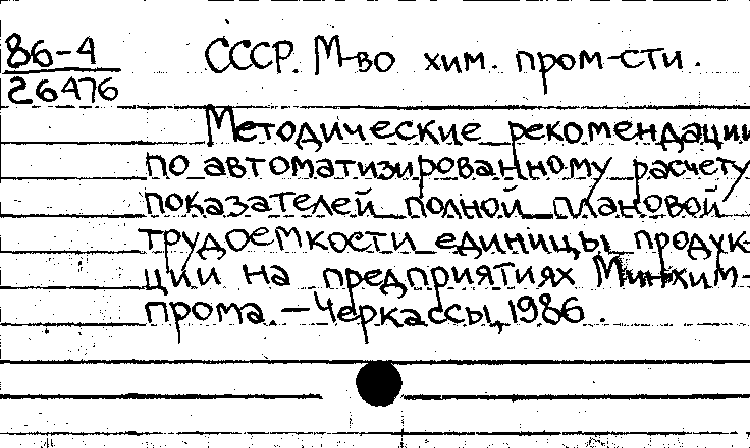 86-4
26476
СССР. М-во хим. пром-сти.
Методические рекомендации
по автоматизированному расчету
показателей полной плановой
трудоемкости единицы продук-
ции на предприятиях Минхим-
прома. - Черкассы, 1986.